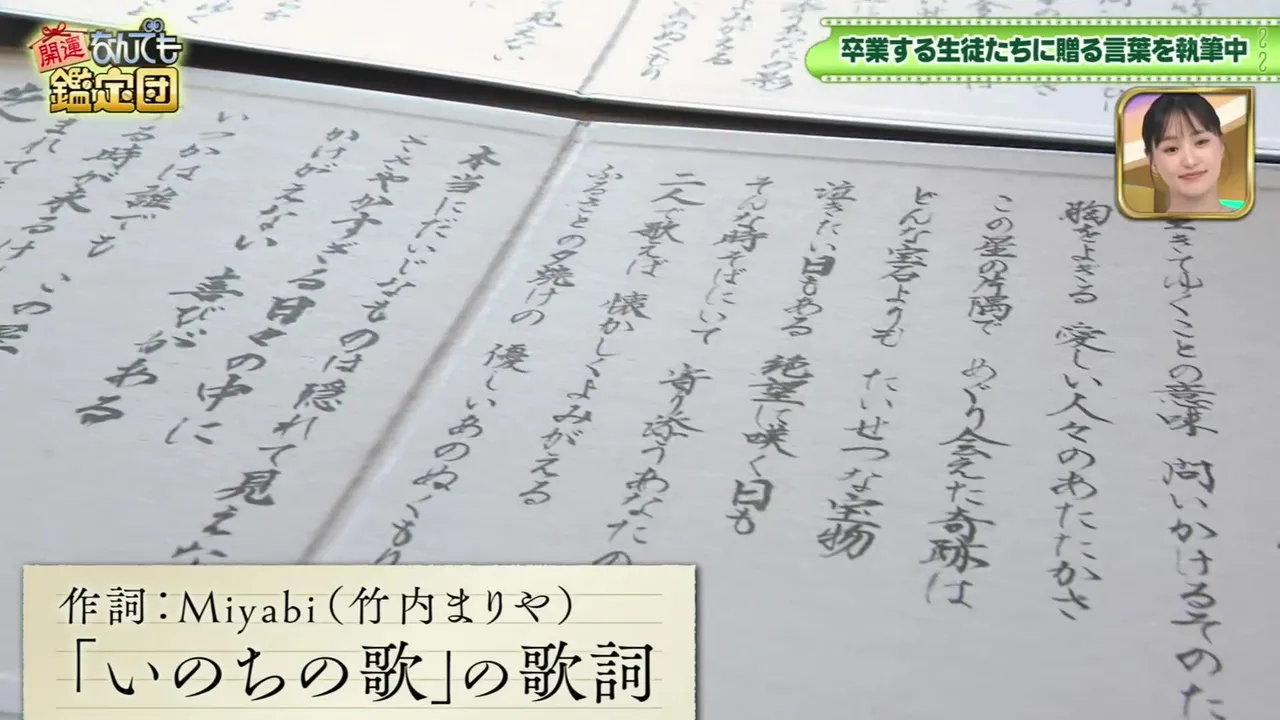 開運なんでも鑑定団
卒業する生徒たちに贈る言葉を執筆中
きてゆくことの意味 問いかけるそのた
胸をよぎる 愛しい人々のあたたかさ
この星の片隅で めぐり会えた奇跡は
どんな宝石よりも たいせつな宝物
泣きたい日もある 絶望に咲く日も
そんな時そばにいて 寄り添うあなたの
二人で歌えば 懐かしくよみがえる
ふるさとの夕焼けの 優しいあのぬくもり
本当にだいじなものは 隠れて見え
ささやかすぎる日々の中に
かけがえない 喜びがある
いつかは誰でも この星
る時が来るけ
まれて
作詞:Miyabi(竹内まりや)
「いのちの歌」の歌詞